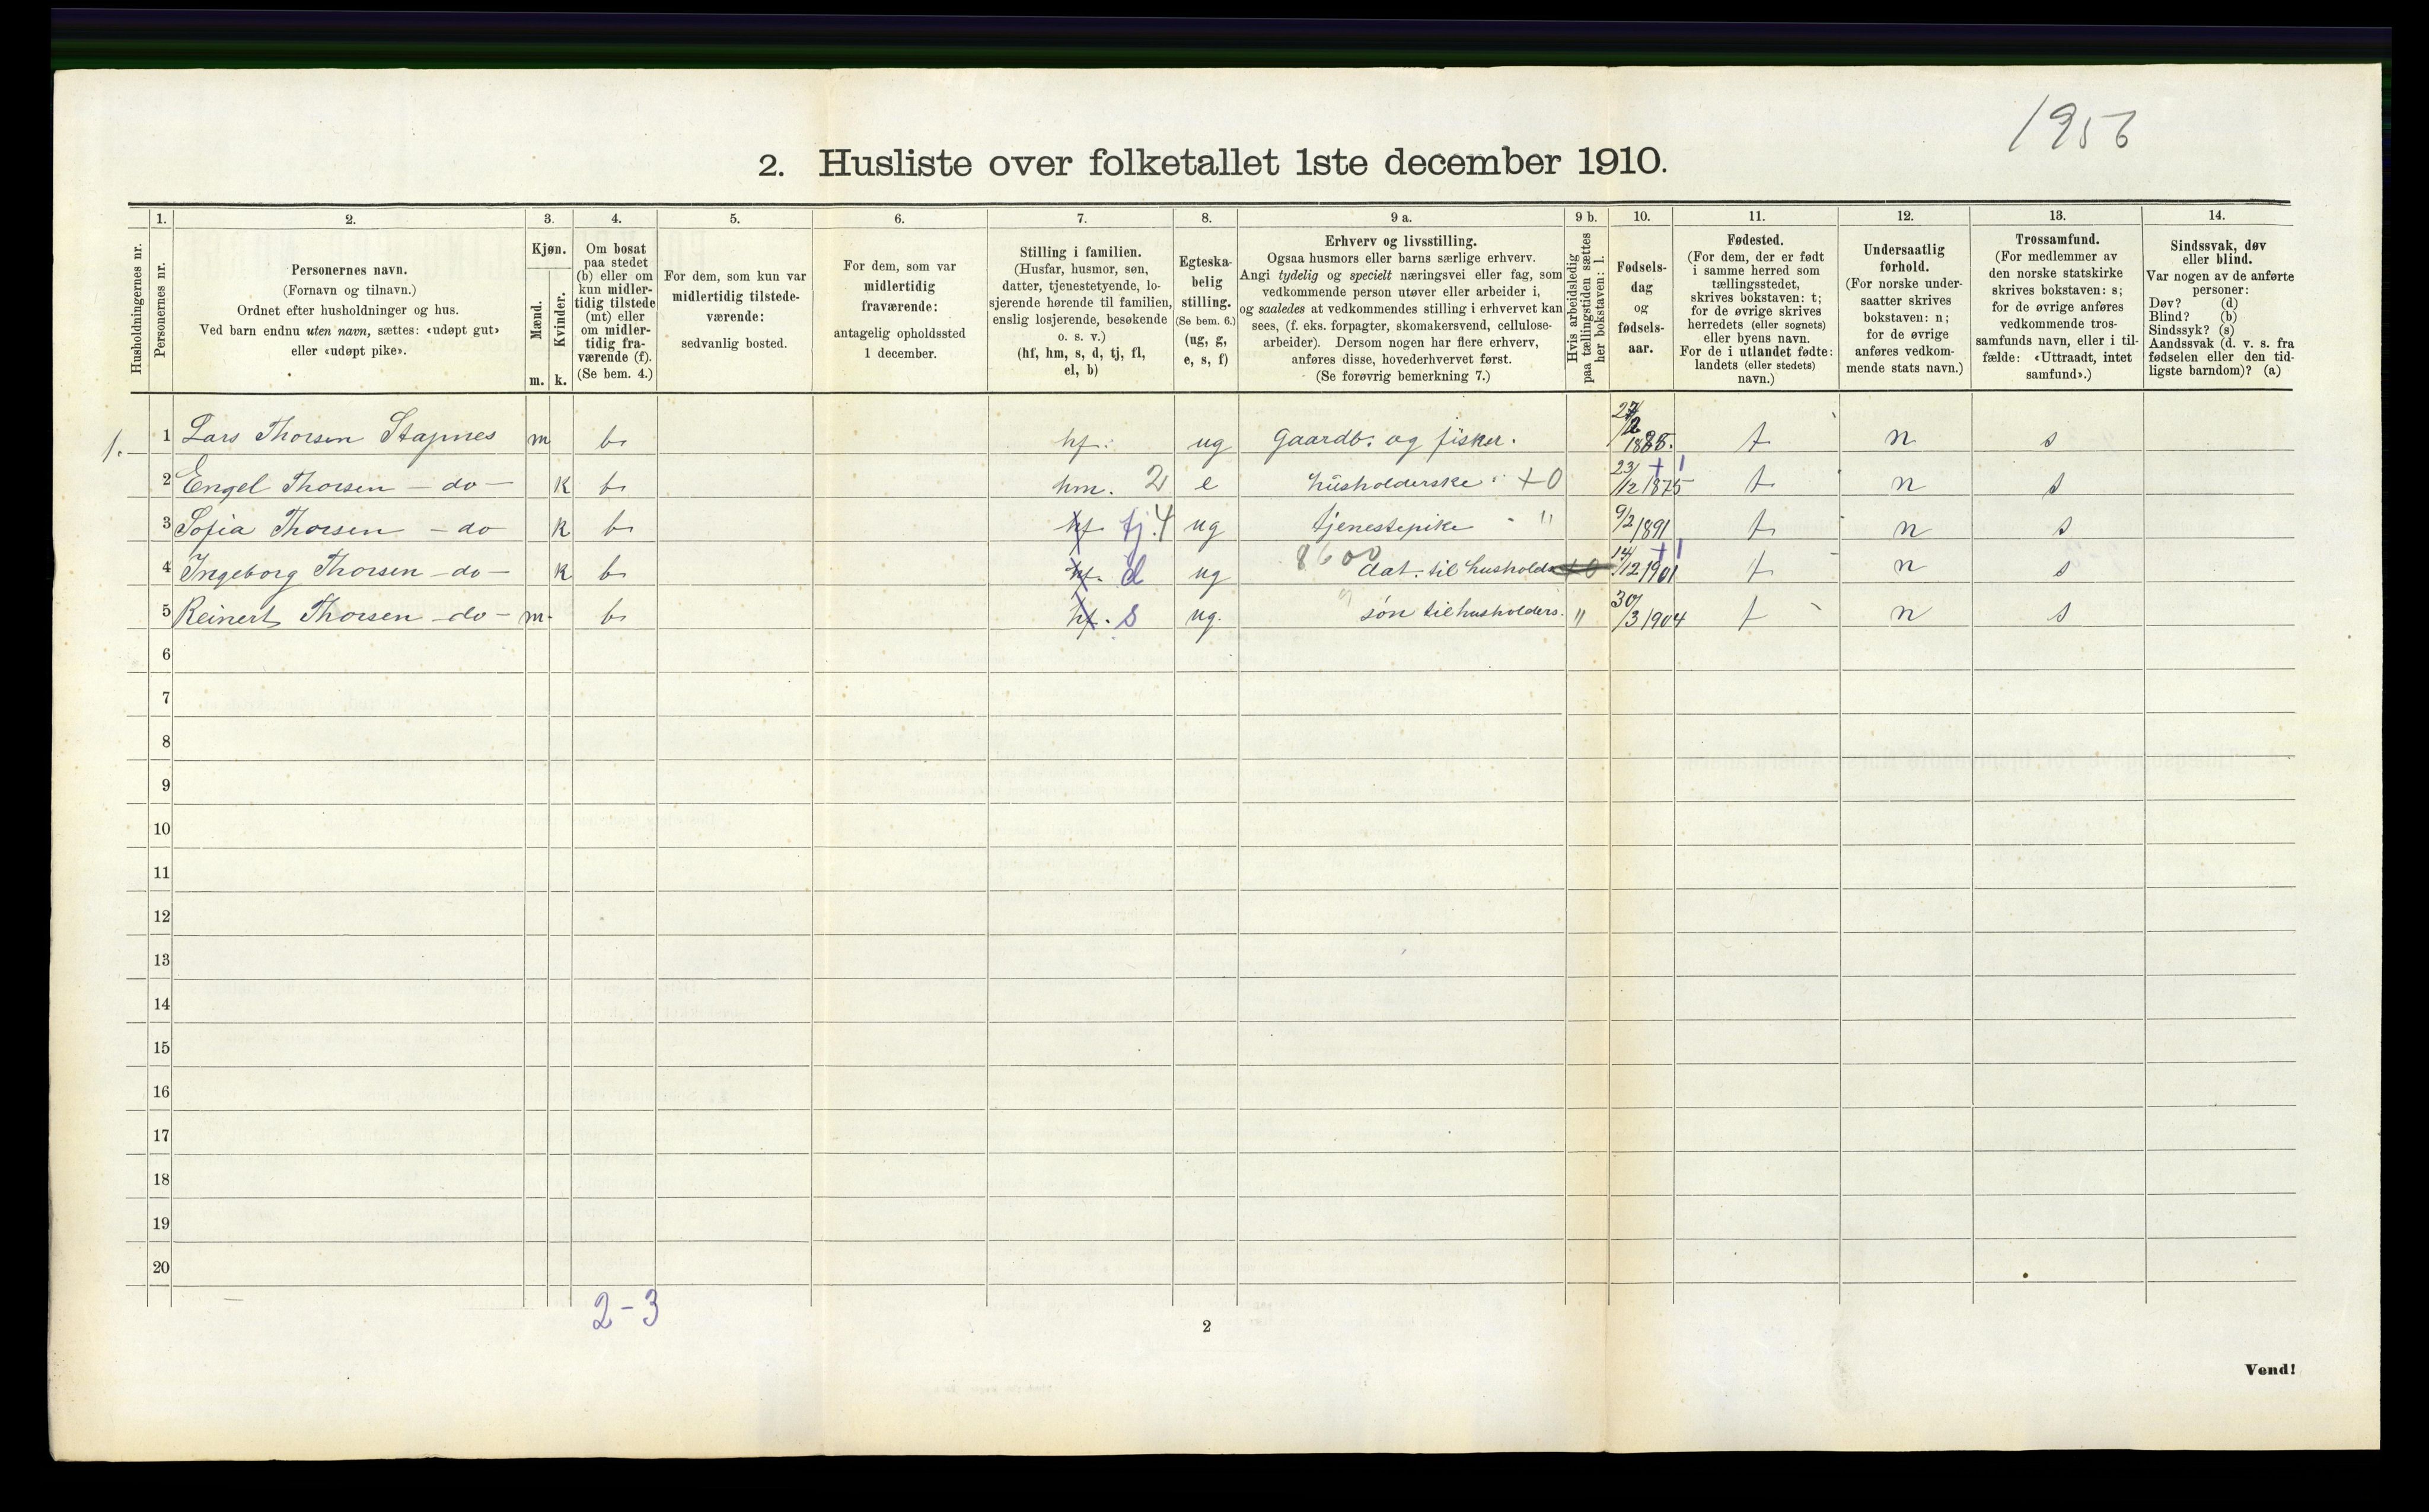 1956
2. Husliste over folketallet 1ste december 1910.
Husholdningernes nr.
1. Personernes nr.
2. Personernes navn.
(Fornavn og tilnavn.)
Ordnet efter husholdninger og hus.
Ved barn endnu uten navn, sættes: «udøpt gut»
eller «udøpt pike».
3. Kjøn.
Mænd. m.
Kvinder. k.
4. Om bosat
paa stedet
(b) eller om
kun midler-
tidig tilstede
(mt) eller
om midler-
tidig fra-
værende (f).
(Se bem. 4.)
5. For dem, som kun var
midlertidig tilstede-
værende:
sedvanlig bosted.
6. For dem, som var
midlertidig
fraværende:
antagelig opholdssted
1 december.
7. Stilling i familien.
(Husfar, husmor, søn,
datter, tjenestetyende, lo-
sjerende hørende til familien,
enslig losjerende, besøkende
o. s. v.)
(hf, hm, s, d, tj, fl,
el, b)
8. Egteska-
belig
stilling.
(Se bem. 6.)
(ug, g,
e, s, f)
9 a. Erhverv og livsstilling.
Ogsaa husmors eller barns særlige erhverv.
Angi tydelig og specielt næringsvei eller fag, som
vedkommende person utøver eller arbeider i,
og saaledes at vedkommendes stilling i erhvervet kan
sees, (f. eks. forpagter, skomakersvend, cellulose-
arbeider). Dersom nogen har flere erhverv,
anføres disse, hovederhvervet først.
(Se forøvrig bemerkning 7.)
9 b. Hvis arbeidsledig
paa tællingstiden sættes
her bokstaven: l.
10. Fødsels-
dag
og
fødsels-
aar.
11. Fødested.
(For dem, der er født
i samme herred som
tællingsstedet,
skrives bokstaven: t;
for de øvrige skrives
herredets (eller sognets)
eller byens navn.
For de i utlandet fødte:
landets (eller stedets)
navn.)
12. Undersaatlig
forhold.
(For norske under-
saatter skrives
bokstaven: n;
for de øvrige
anføres vedkom-
mende stats navn.)
13. Trossamfund.
(For medlemmer av
den norske statskirke
skrives bokstaven: s;
for de øvrige anføres
vedkommende tros-
samfunds navn, eller i til-
fælde: «Uttraadt, intet
samfund».)
14. Sindssvak, døv
eller blind.
Var nogen av de anførte
personer:
Døv? (d)
Blind? (b)
Sindssyk? (s)
Aandssvak (d. v. s. fra
fødselen eller den tid-
ligste barndom)? (a)
1. 1 Lars Thorsen Stapnes m b hf. ug Gaardb. og fisker. 1885. t n s
2 Engel Thorsen - do - k b hm. 2 e husholderske +0 23/12 1875 t n s
3 Sofia Thorsen - do k b hf tj. 4 ug tjenestepike " 9/2 1891 t n s
4 Ingeborg Thorsen - do - k b hf. d ug 8600 dat. til husholds +0 14/12 1901 t n s
5 Reinert Thorsen - do - m. b hf. s ug. søn til husholders. " 30/3 1904 t n s
6
7
8
9
10
11
12
13
14
15
16
17
18
19
20
2-3
2
Vend!